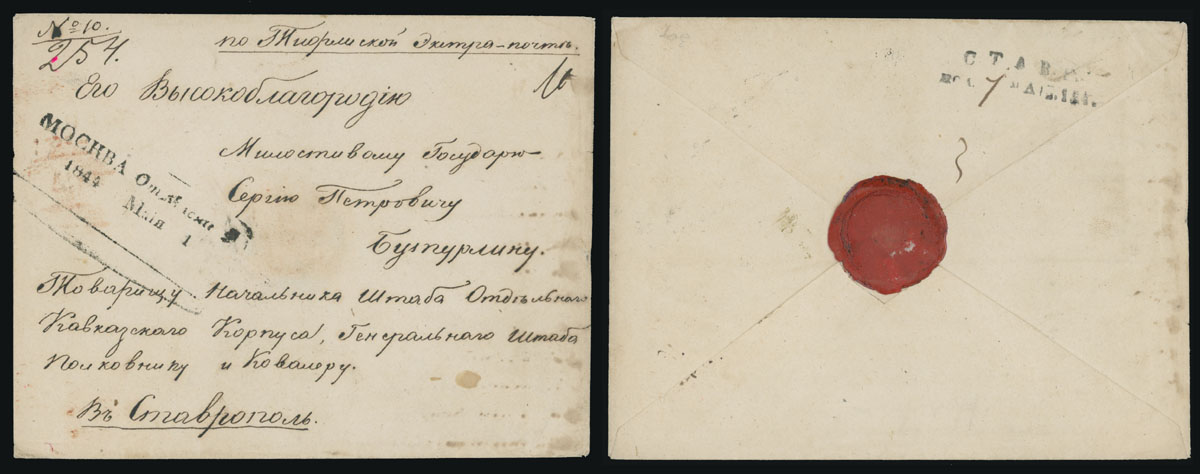 № 10.
254.
по Тифлиской Экстра-почтѣ.
Его Высокоблагородію
МОСКВА
1844
Маія 1
Милостивому Государю
Сергію Петровичу
Бутурлину.
Товарищу Начальника Штаба Отдѣльнаго
Кавказскаго Корпуса, Генеральнаго Штаба
Полковнику и Ковалеру.
Въ Ставрополь.
СТАВР
пол. 7